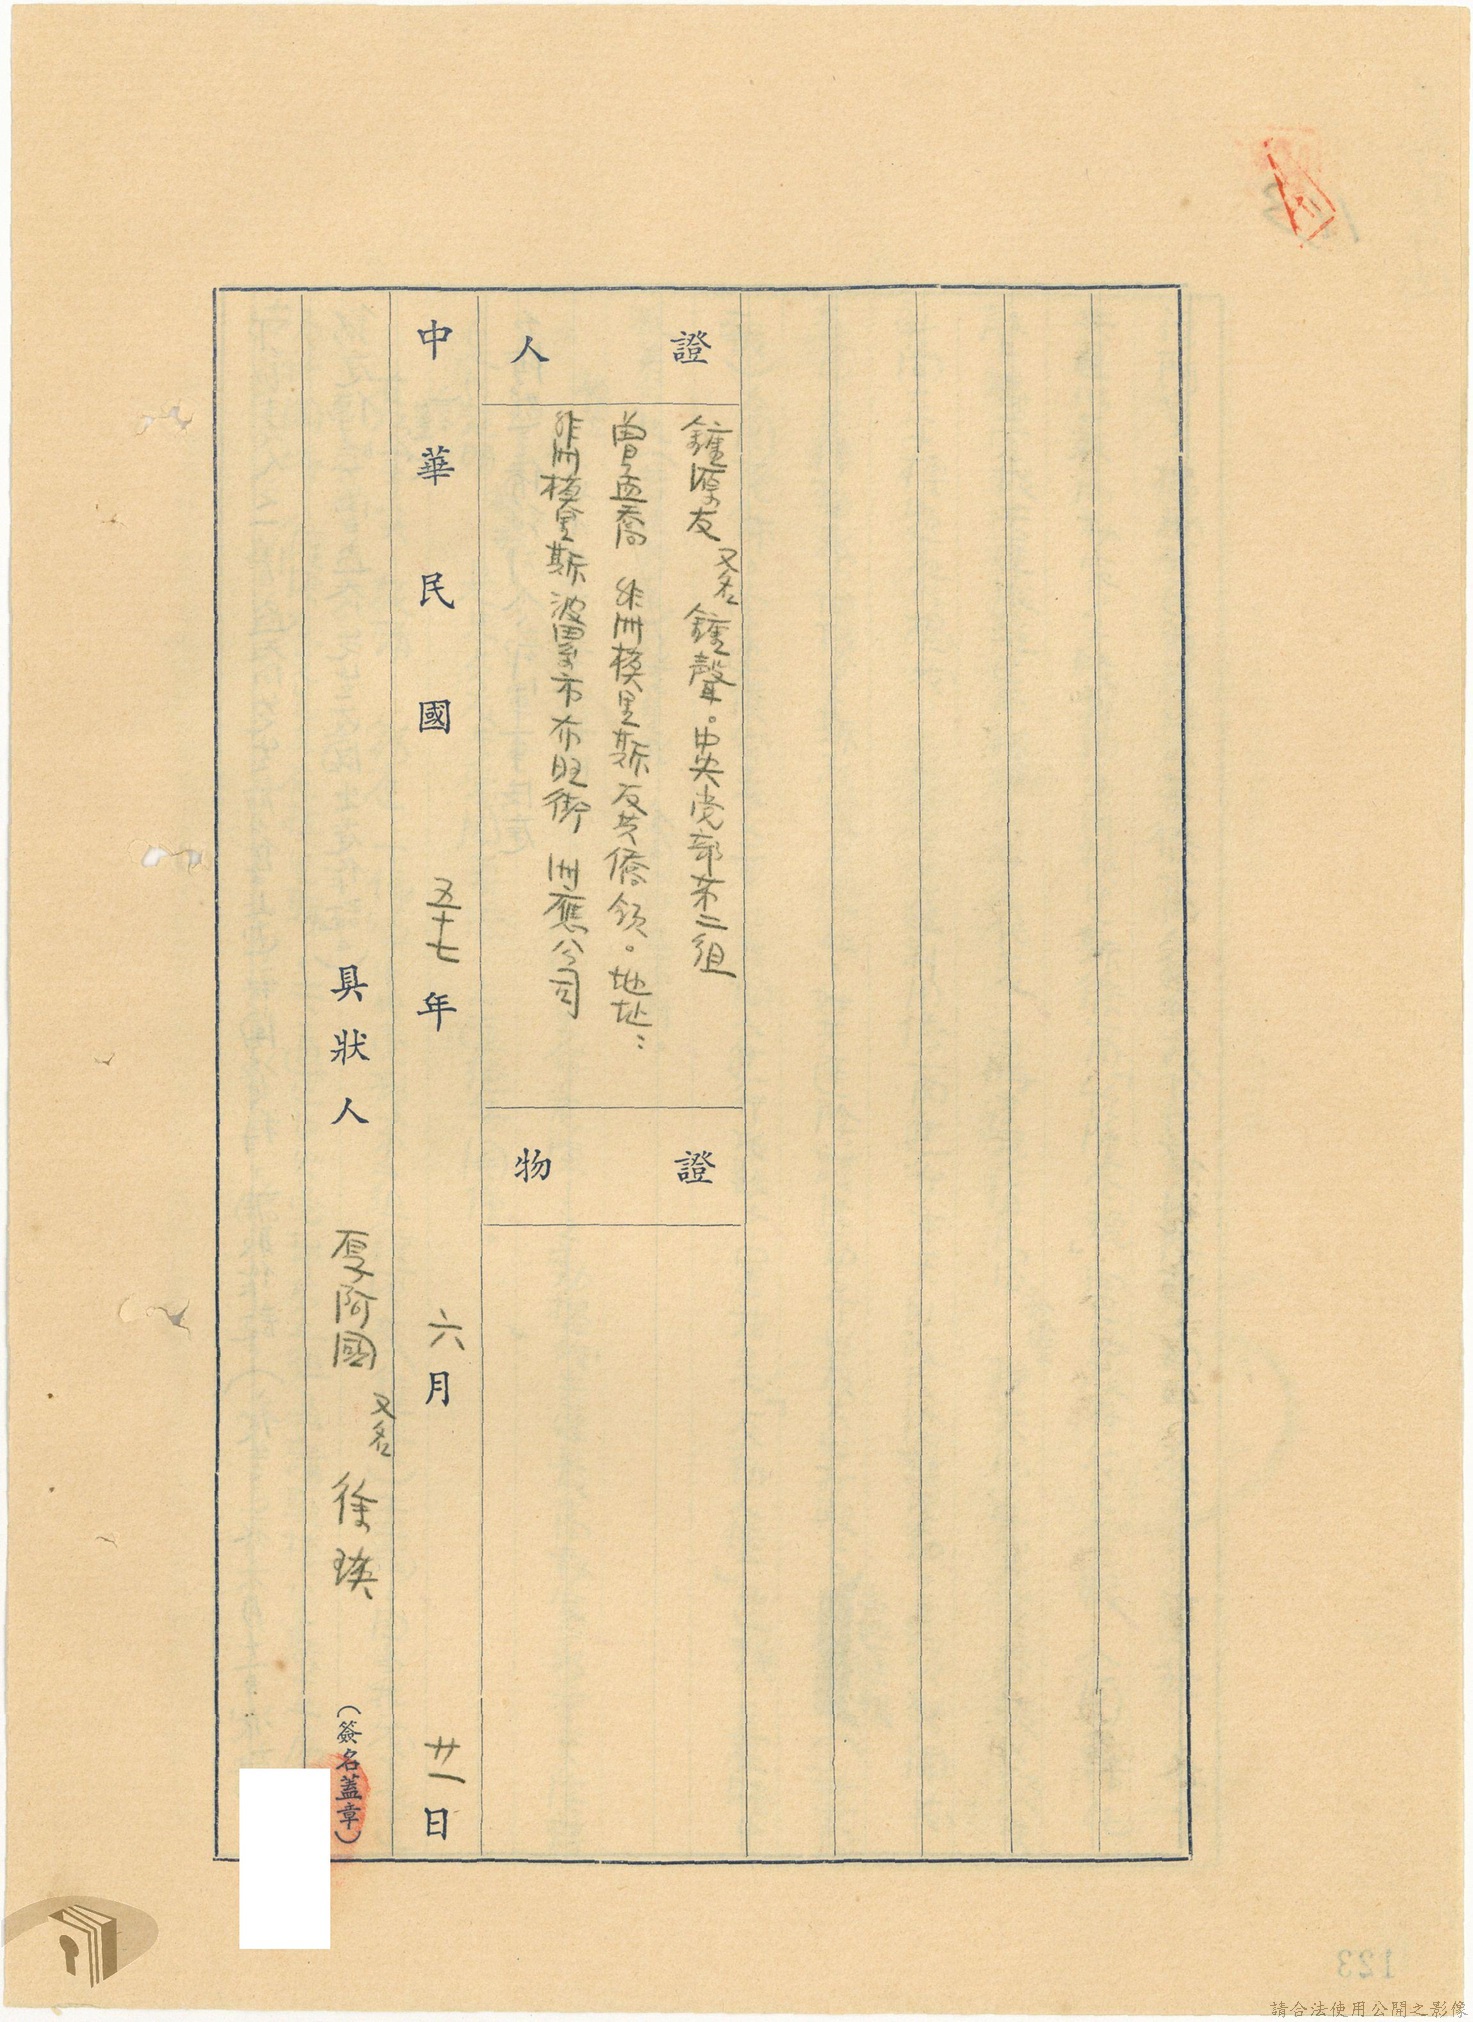 證人
鍾厚友 又名 鍾聲。中央党部第二組
曾孟喬 非洲模里斯反共僑領。地址：
非洲模里斯 波累市布旺街 洲應公司
證物
中華民國五十七年六月廿一日
具狀人 厚阿國 又名 徐瑛 （簽名蓋章）
123
請合法使用公開之影像